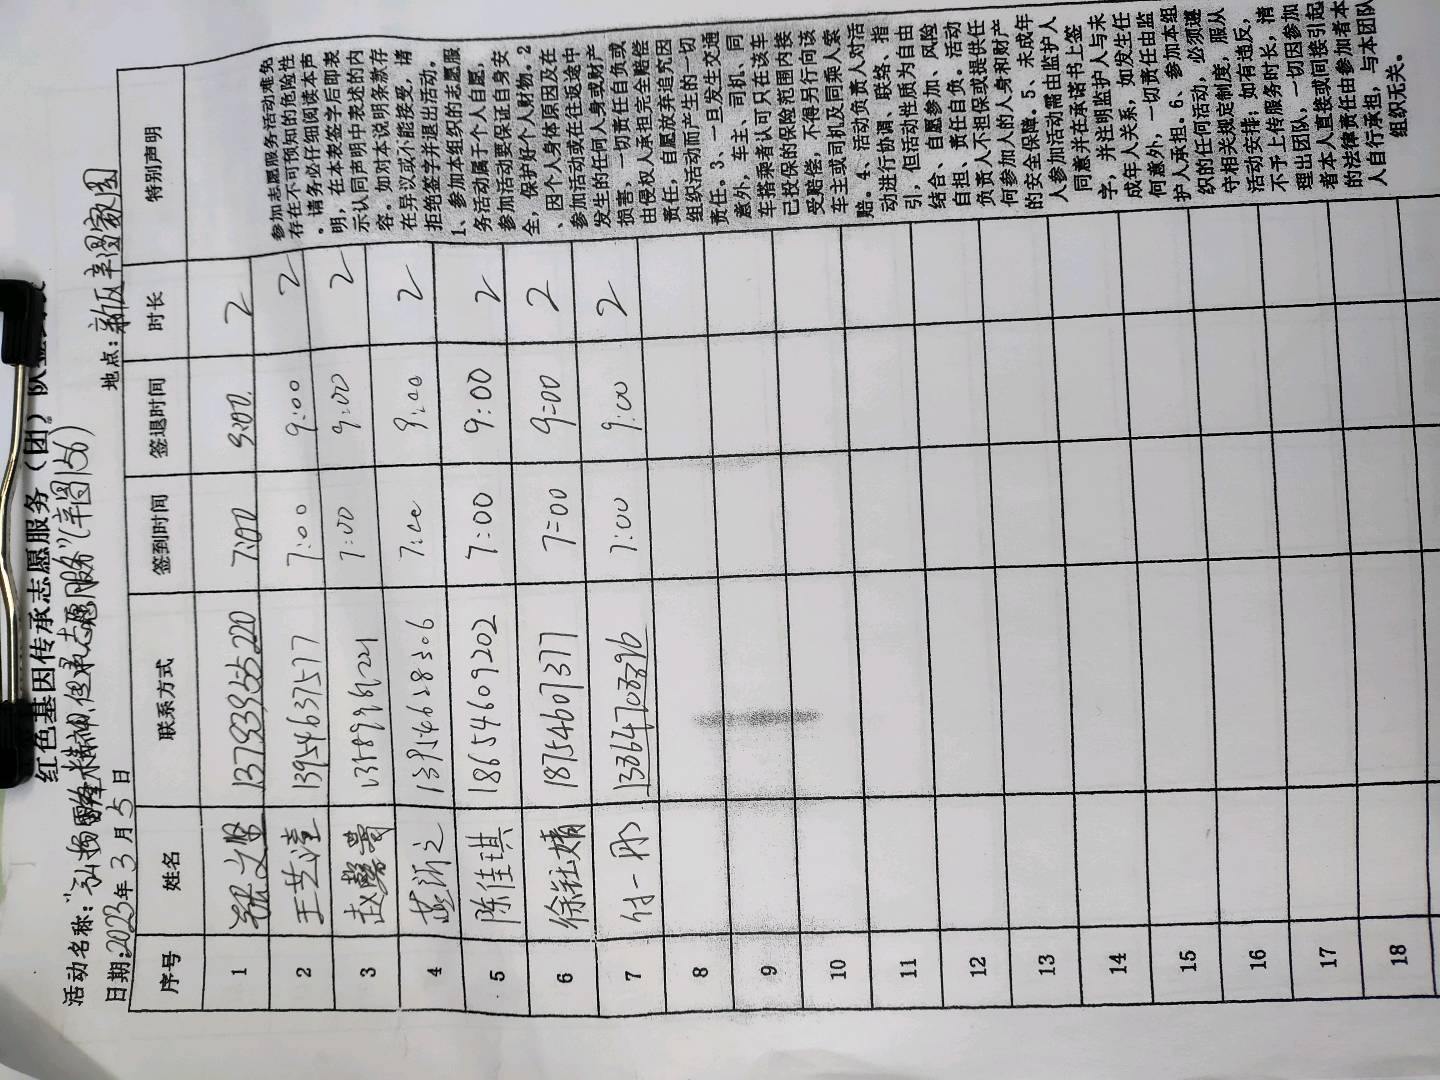 红色基因传承志愿服务（团）队
活动名称：“弘扬雷锋精神，传承志愿服务”（辛图156）
日期：2023年3月5日 地点：新区辛图家园
序号 姓名 联系方式 签到时间 签退时间 时长 特别声明
1 文 7:00 9:00 2
2 王艺 13954637577 7:00 9:00 2
3 赵馨 7:00 9:00 2
4 13954628506 7:00 9:00 2
5 陈佳琪 18654609202 7:00 9:00 2
6 徐钰婧 18754607377 7=00 9=00 2
7 付一彤 7:00 9:00 2
8
9
10
11
12
13
14
15
16
17
18
参加志愿服务活动难免
存在不可预知的危险性
。请务必仔细阅读本声
明，在本表签字后即表
示认同声明中表述的内
容。如对本说明条款存
在异议或不能接受，请
拒绝签字并退出活动。
1、参加本组织的志愿服
务活动属于个人自愿，
参加活动要保证自身安
全，保护好个人财物。2
、因个人身体原因及在
参加活动或在往返途中
发生的任何人身或财产
损害，一切责任自负或
由侵权人承担完全赔偿
责任，自愿放弃追究因
组织活动而产生的一切
责任。3、一旦发生交通
意外，车主、司机、同
车搭乘者认可只在该车
已投保的保险范围内接
受赔偿，不得另行向该
车主或司机及同乘人索
赔。4、活动负责人对活
动进行协调、联络、指
引，但活动性质为自由
结合、自愿参加、风险
自担、责任自负。活动
负责人不担保或提供任
何参加人的人身和财产
的安全保障。5、未成年
人参加活动需由监护人
同意并在承诺书上签
字，并注明监护人与未
成年人关系，如发生任
何意外，一切责任由监
护人承担。6、参加本组
织的任何活动，必须遵
守相关规定制度，服从
活动安排，如有违反，
不予上传服务时长，清
理出团队，一切因参加
者本人直接或间接引起
的法律责任由参加者本
人自行承担，与本团队
组织无关。